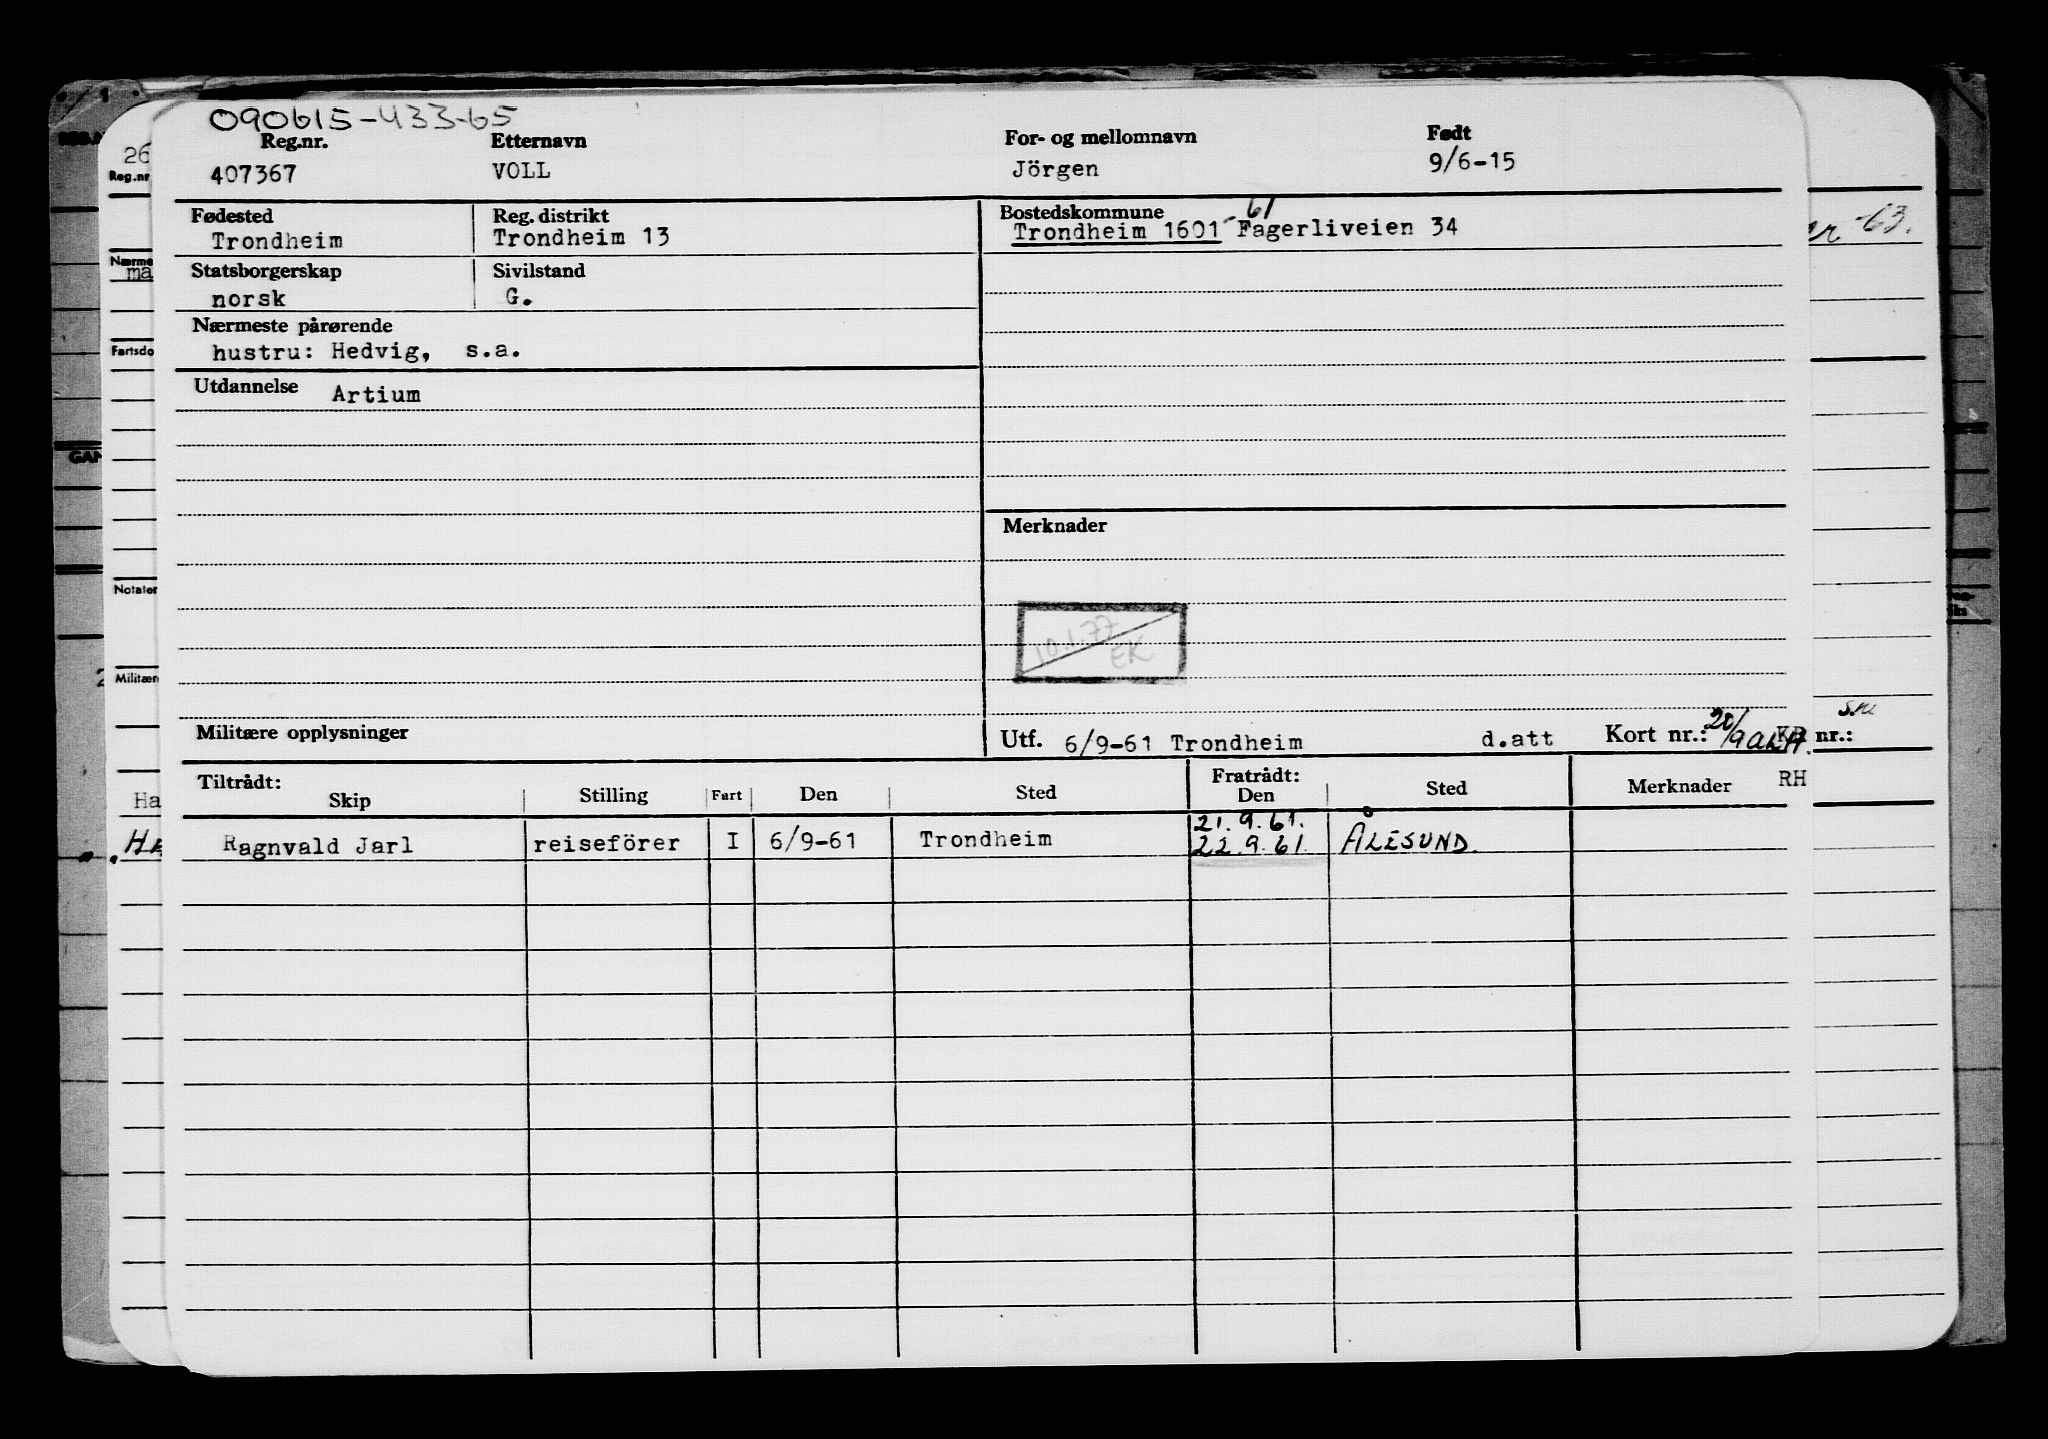 090615-433-65
Reg.nr. Etternavn For- og mellomnavn Født
407367 VOLL Jörgen 9/6-15
Fødested Reg. distrikt Bostedskommune 61
Trondheim Trondheim 13 Trondheim 1601 Fagerliveien 34
Statsborgerskap Sivilstand
norsk G.
Nærmeste pårørende
hustru: Hedvig, s.a.
Utdannelse Artium
Merknader
10.1.77
EK
Militære opplysninger Utf. 6/9-61 Trondheim d.att Kort nr.: 20/9 nr.:
Tiltrådt: Fratrådt: RH
Skip Stilling Fart Den Sted Den Sted Merknader
21.9.61.
Ragnvald Jarl reiseförer I 6/9-61 Trondheim 22.9.61. ÅLESUND.
26
Reg.nr
Nærme
ma
Fartsdo
Notater
Militære
Ha
GAN
-63.